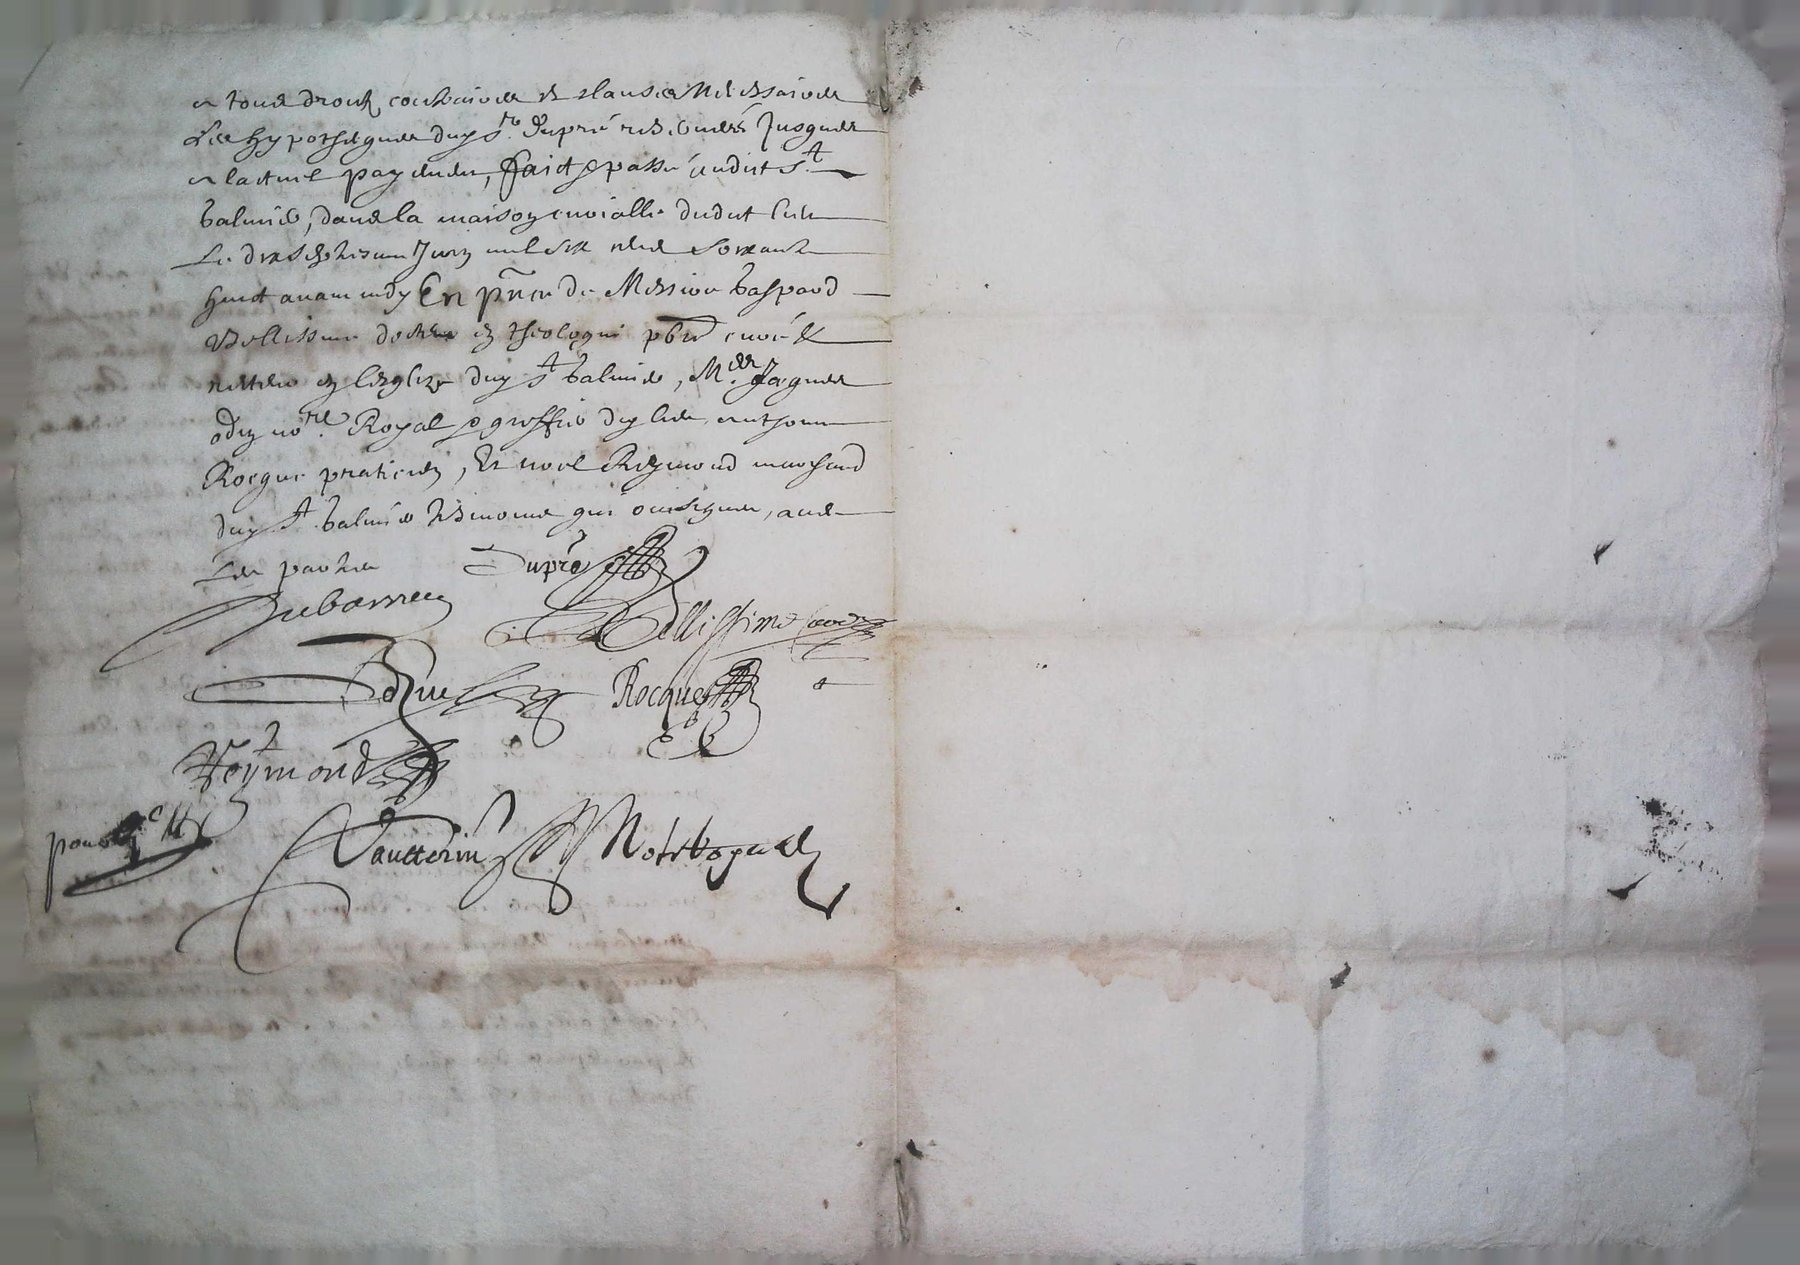 a tous droitz contraires et clauses necessaires
Les hypotheques duy Sr. Dupré reservees Jusques
a lactuel payement, faict & passé audict St
galmier, dans la maison curialle dudict lieu
Le dix septiesme Juin mil six cens soixante
huict avant midy En pñce de Messire gaspard
Bellissime docteur en theologie pbre curé &
recteur en lesglize duy St galmier, Mes. Jaques
odin nore. Royal & greffier duy lieu, anthoine
Rocque praticien, Et noel Reymond marchand
duy St. galmier tesmoins qui ont signé, avec
Les parties
Dupré
Bellissime curé
Odin
Rocque
Reymond
pour
Vautterin Note Royal